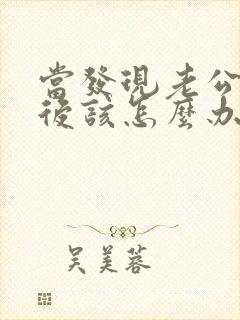 當發現老公
後該怎麼办
吴美蓉